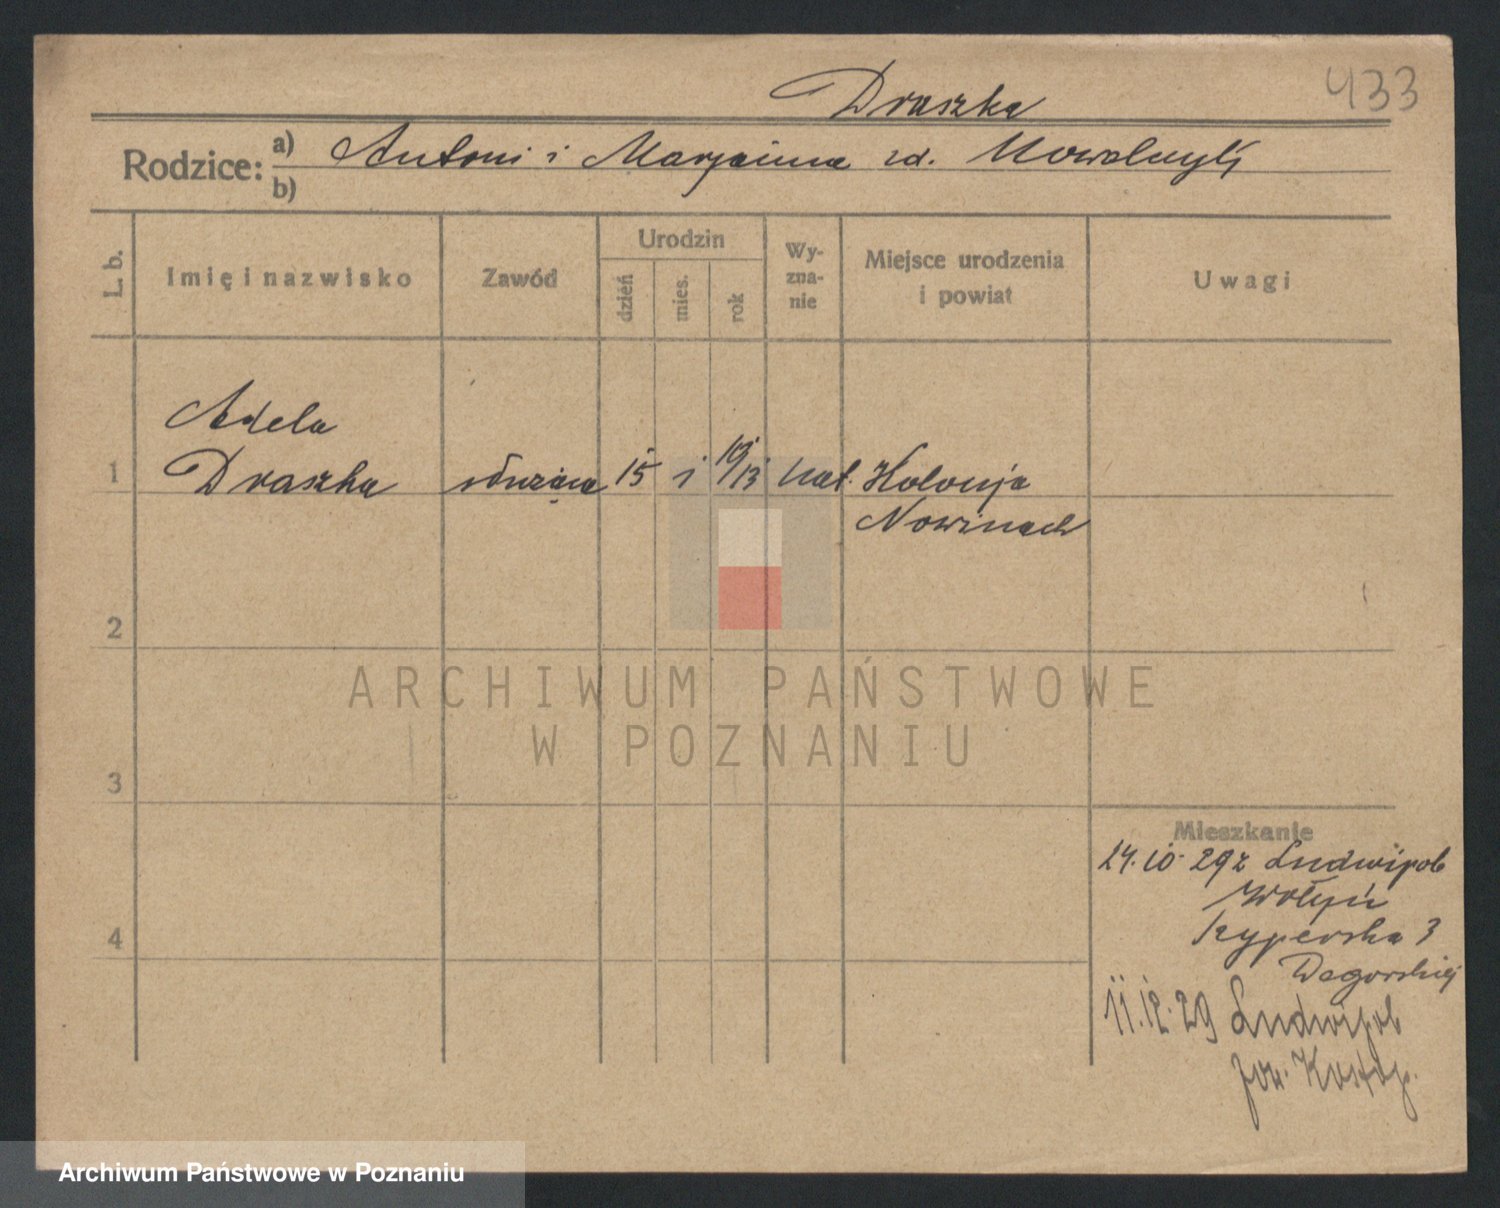 433
Draszka
Rodzice: a) Antoni i Marjanna zd. Kowalczyk
b)
L. b.
Imię i nazwisko
Zawód
Urodzin
dzień
mies.
rok
Wy-
zna-
nie
Miejsce urodzenia
i powiat
Uwagi
Adela
1 Draszka służąca 15 i 19/13 kat. Kolonja
Nowinach
2
ARCHIWUM PAŃSTWOWE
W POZNANIU
3
Mieszkanie
24.10.29 z Ludwipol
Wołyń
3
4
11.12.29 Ludwipol
pow. Kostop.
Archiwum Państwowe w Poznaniu